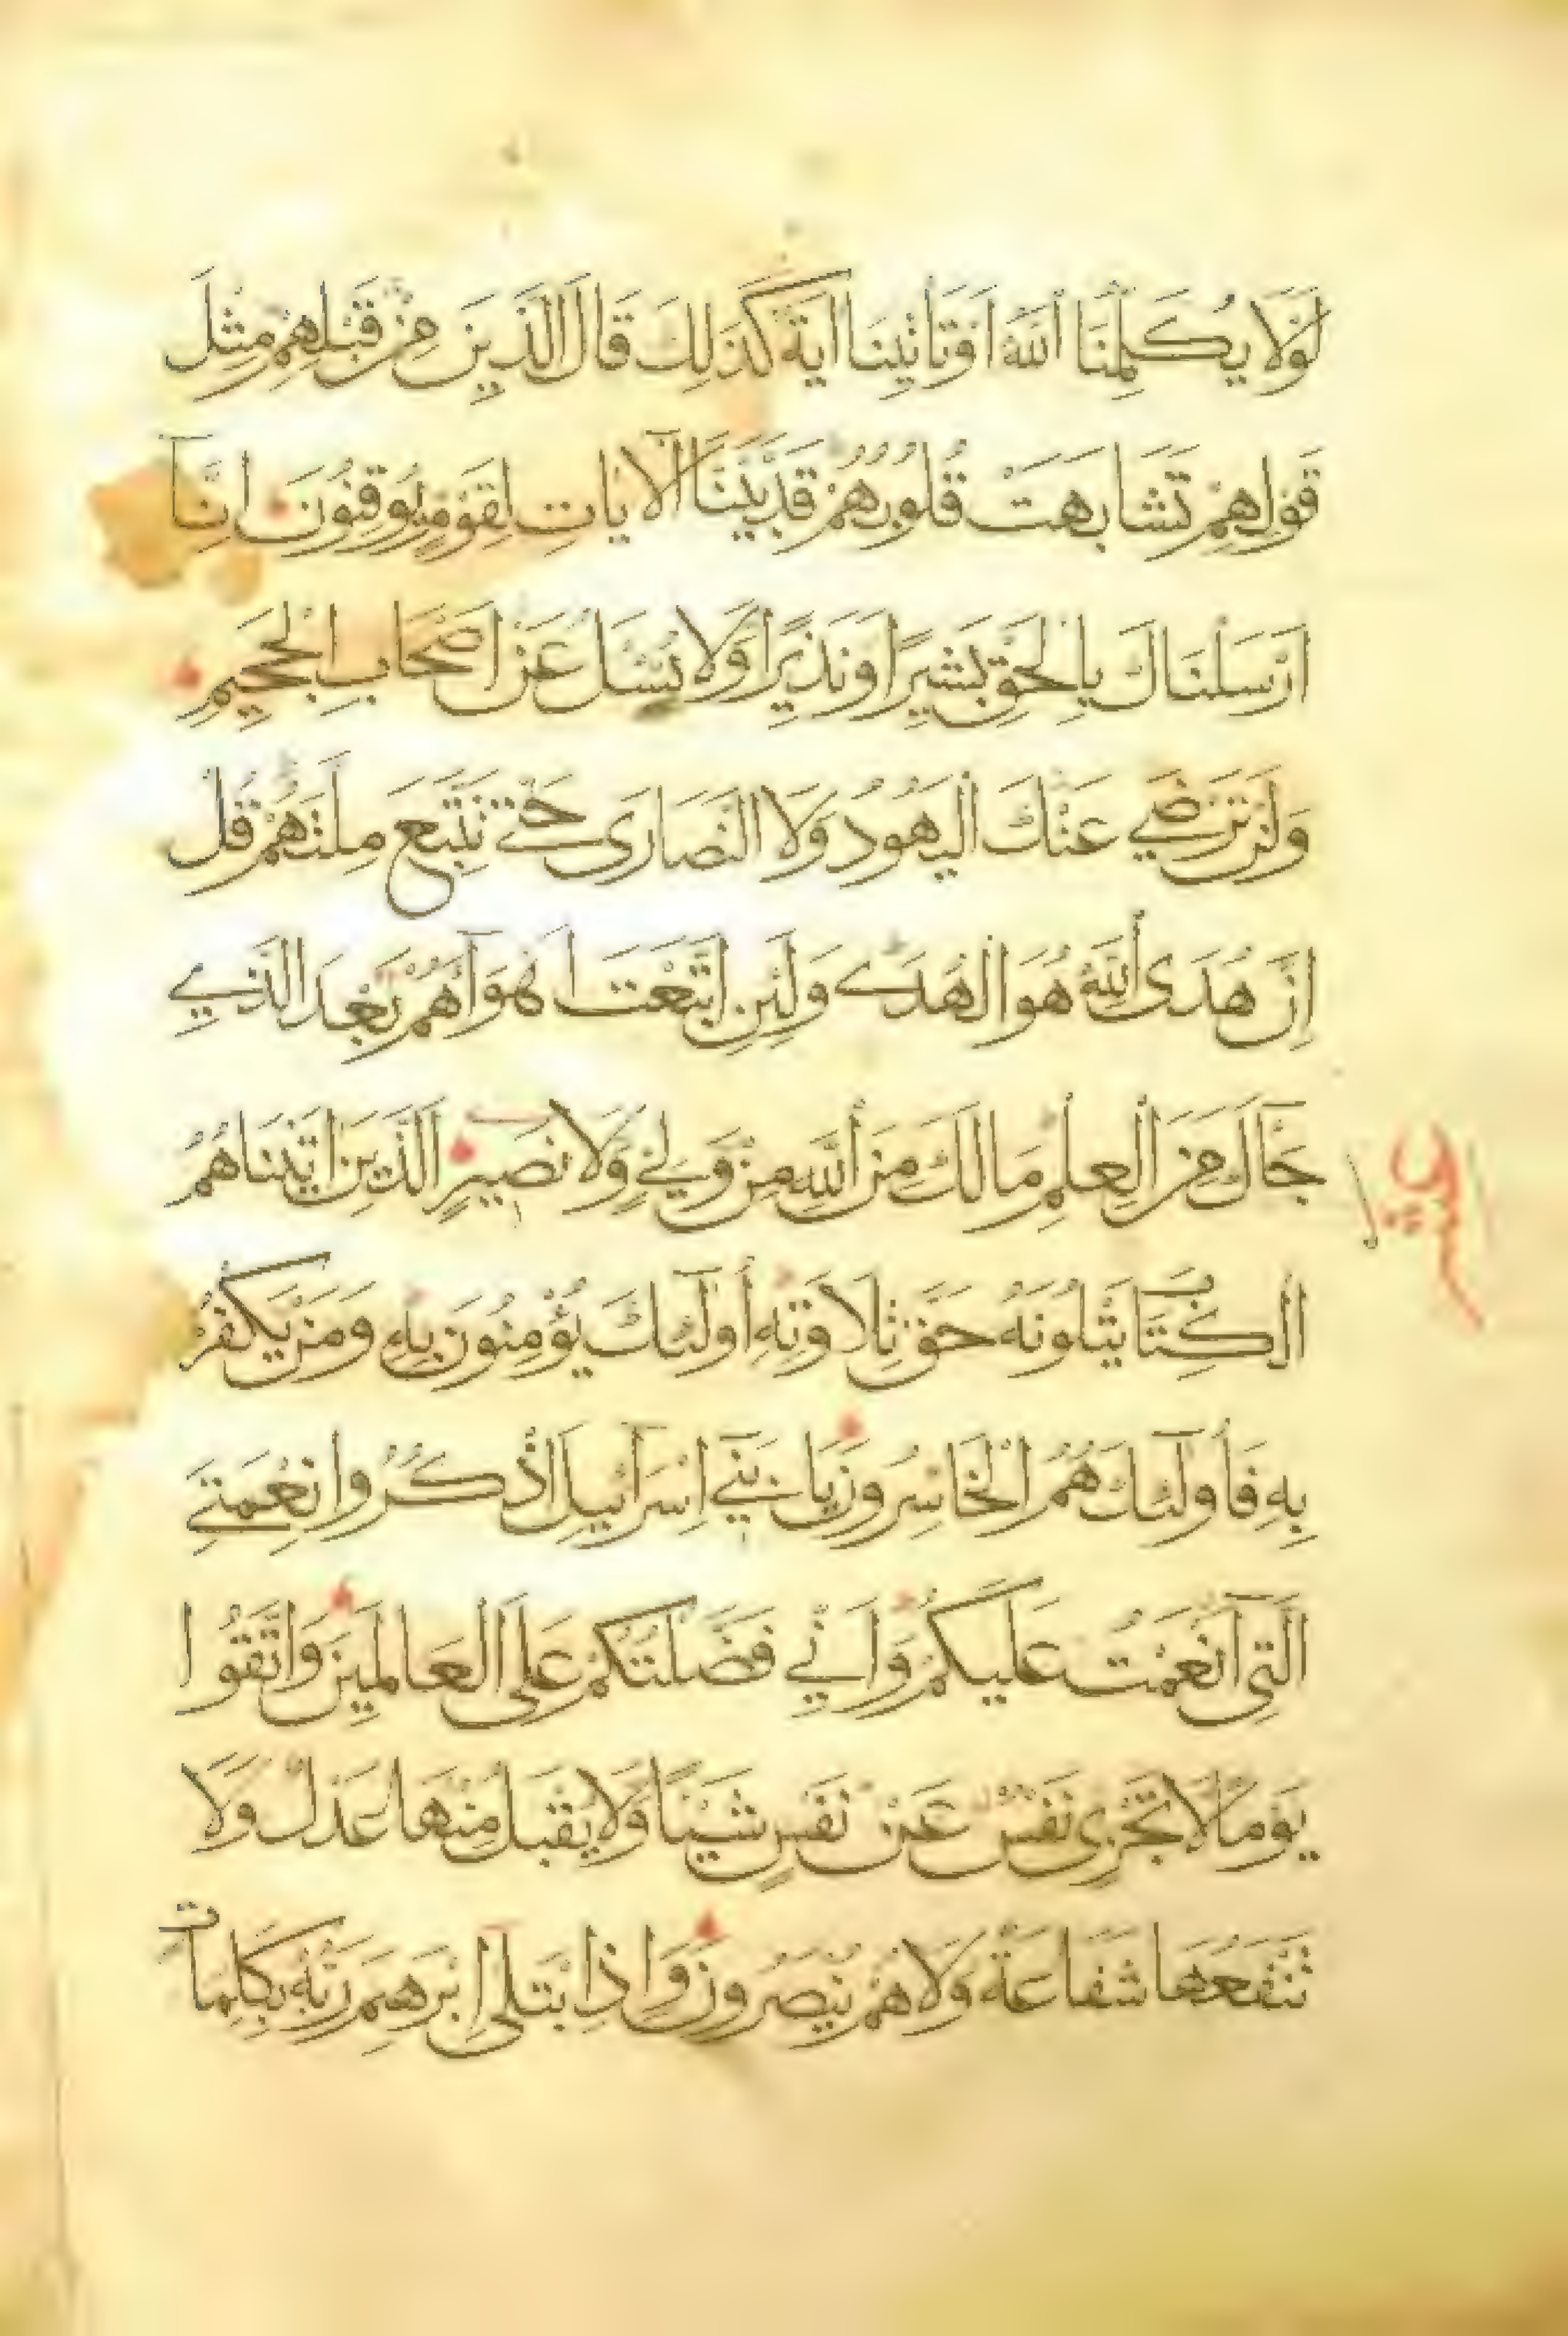 لَوْلَا يُكَلِّمُنَا اللَّهُ اَوْ تَاْتِينَا اٰيَةٌ كَذَلِكَ قَالَ الَّذِينَ مِنْ قَبْلِهِمْ مِثْلَ
قَوْلِهِمْ تَشَابَهَتْ قُلُوبُهُمْ قَدْ بَيَّنَّا الْاٰيَاتِ لِقَوْمٍ يُوقِنُونَ اِنَّآ
اَرْسَلْنَاكَ بِالْحَقِّ بَشِيرًا وَنَذِيرًا وَلَا تُسْئَلُ عَنْ اَصْحَابِ الْجَحِيمِ
وَلَنْ تَرْضَي عَنْكَ الْيَهُودُ وَلَا النَّصَارَى حَتَّي تَتَّبِعَ مِلَّتَهُمْ قُلْ
اِنَّ هُدَى اللَّهِ هُوَ الْهُدَى وَلَئِنِ اتَّبَعْتَ اَهْوَآءَهُمْ بَعْدَ الَّذِي
جَآءَكَ مِنَ الْعِلْمِ مَا لَكَ مِنَ اللَّهِ مِنْ وَلِيٍّ وَلَا نَصِيرٍ الَّذِينَ اٰتَيْنَاهُمُ
الْكِتَابَ يَتْلُونَهُ حَقَّ تِلَاوَتِهِ أُولَٓئِكَ يُؤْمِنُونَ بِهِ وَمَنْ يَكْفُرْ
بِهِ فَأُولَٓئِكَ هُمُ الْخَاسِرُونَ يَا بَنِيٓ اِسْرَآئِيلَ اذْكُرُوا نِعْمَتِيَ
الَّتِيٓ اَنْعَمْتُ عَلَيْكُمْ وَاَنِّي فَضَّلْتُكُمْ عَلَى الْعَالَمِينَ وَاتَّقُوا
يَوْمًا لَا تَجْزِي نَفْسٌ عَنْ نَفْسٍ شَيْئًا وَلَا يُقْبَلُ مِنْهَا عَدْلٌ وَلَا
تَنْفَعُهَا شَفَاعَةٌ وَلَا هُمْ يُنْصَرُونَ وَاِذِ ابْتَلَىٓ اِبْرَهِيمَ رَبُّهُ بِكَلِمَاتٍ